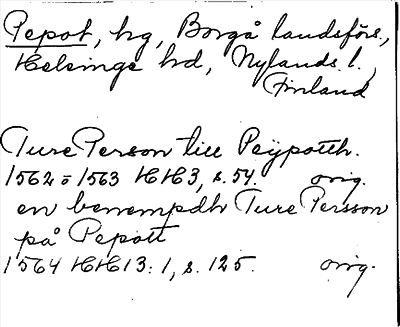 Pepot, hg, Borgå landsförs.,
Helsinge hd, Nylands l.,
Finland
Ture Person till Peÿpotth.
1562 o 1563 HH3, s. 54. orig.
en benempdh Ture Persson
på Pepott
1564 HH13:1, s. 125. orig.